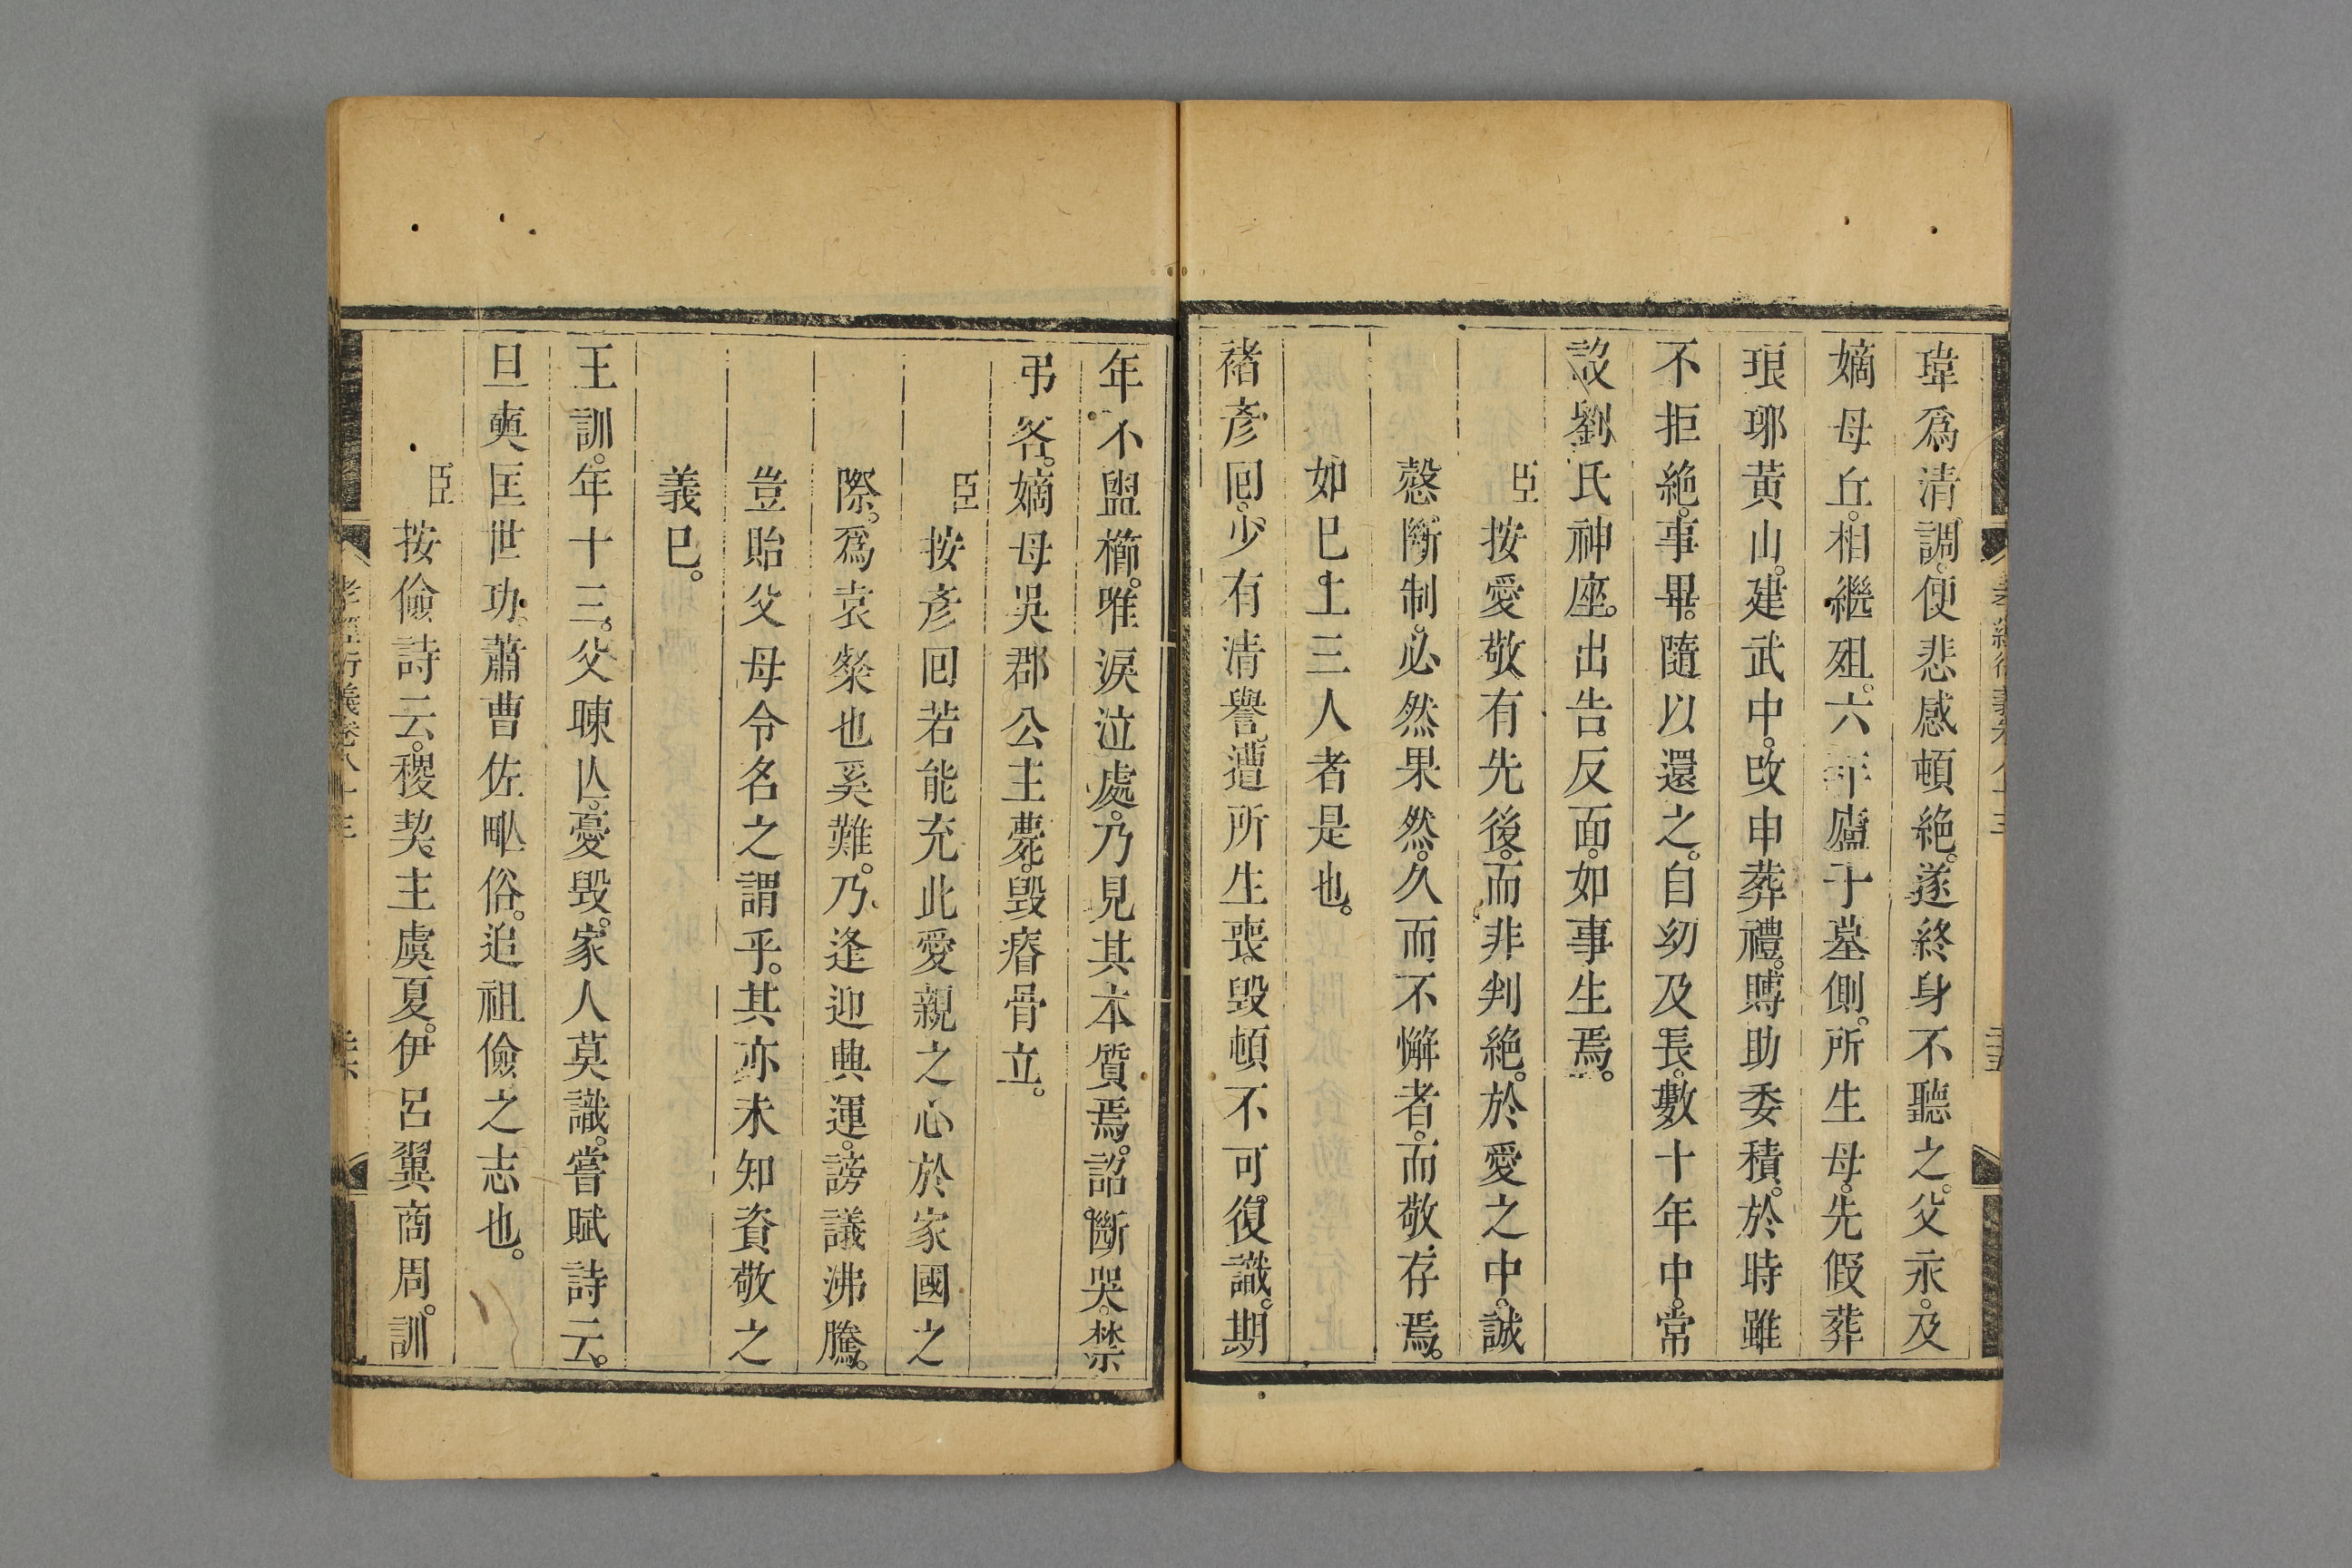 瑋爲清調。便悲感頓絶。遂終身不聽之。父永。及
嫡母丘。相繼殂。六年廬于墓側。所生母。先假葬
琅琊黃山。建武中。攺申葬禮。賻助委積。於時雖
不拒絶。事畢。隨以還之。自幼及長。數十年中。常
設劉氏神座。出告反面。如事生焉。
臣按愛敬有先後。而非判絶。於愛之中。誠
慤斷制。必然果然。久而不懈者。而敬存焉。
如巳上三人者是也。
褚彥回。少有清譽。遭所生喪。毀頓不可復識。期
年不盥櫛。唯淚泣處。乃見其本質焉。詔斷哭。禁
弔客。嫡母吳郡公主薨。毀瘠骨立。
臣按彥回若能充此愛親之心於家國之
際。爲袁粲也奚難。乃逢迎典運。謗議沸騰。
豈貽父母令名之謂乎。其亦未知資敬之
義巳。
王訓。年十三。父暕亾。憂毀。家人莫識。嘗賦詩云。
旦奭匡世功。蕭曹佐甿俗。追祖儉之志也。
臣按儉詩云。稷契。主虞夏。伊呂翼商周。訓
孝經衍義卷八十三